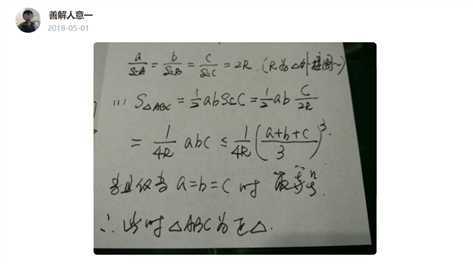 善解人意一
2018-05-01
a/SinA = b/SinB = c/SinC = 2R. (R为△外接圆
S△ABC = 1/2 ab SinC = 1/2 ab c/2R
= 1/4R abc ≤ 1/4R (a+b+c/3)³.
当且仅当 a=b=c 时 取等号.
∴ 此时 △ABC为正△.